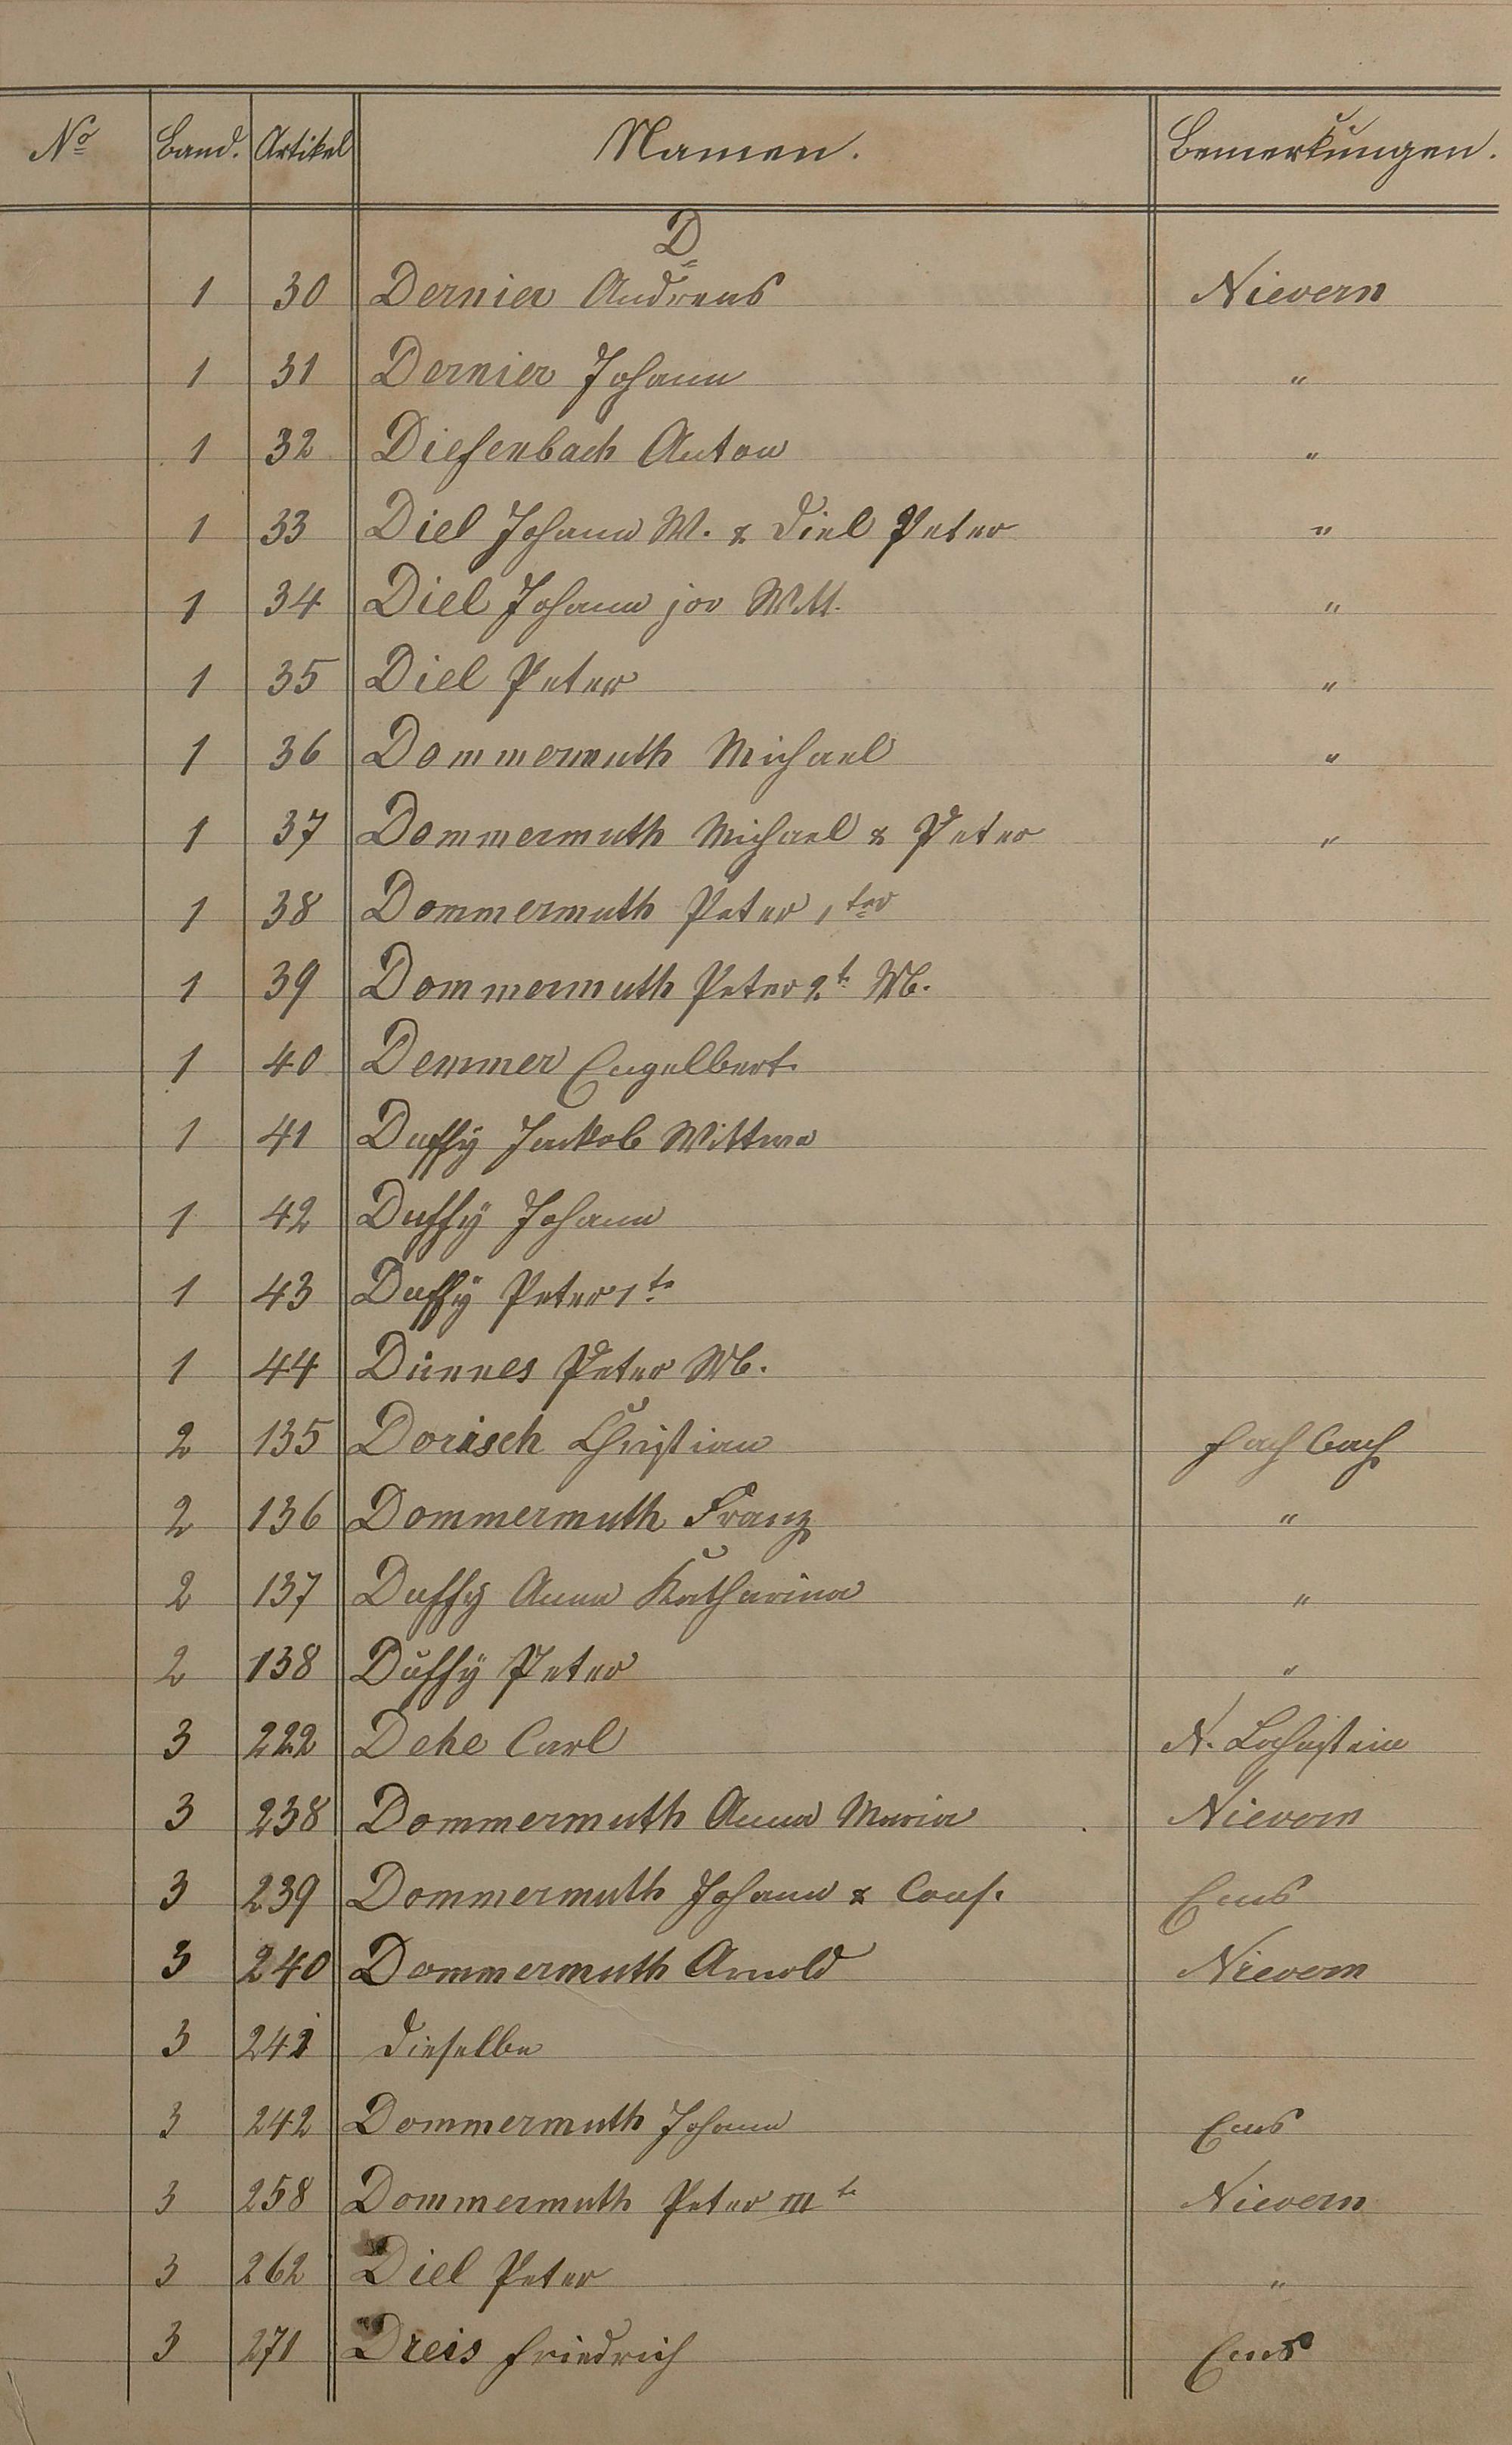 No Band. Artikel Namen. Bemerkungen.
D
1 30 Dernier Andreas Nievern
1 31 Dernier Johann "
1 32 Diefenbach Anton "
1 33 Diel Johann W. & Diel Peter "
1 34 Diel Johann jor Witt. "
1 35 Diel Peter "
1 36 Dommermuth Michael "
1 37 Dommermuth Michael & Peter "
1 38 Dommermuth Peter 1ter
1 39 Dommermuth Peter 2t Wb.
1 40 Demmer Engelbert
1 41 Duffÿ Jackob Wittwe
1 42 Duffÿ Johann
1 43 Duffÿ Peter 1te
1 44 Dünnes Peter Wb.
2 135 Dorisch Christian Fachbach
2 136 Dommermuth Franz "
2 137 Duffÿ Anna Katharina "
2 138 Duffÿ Peter "
3 222 Dehe Carl N. Lahnstein
3 238 Dommermuth Anna Maria Nievern
3 239 Dommermuth Johann & Cons. Ems
3 240 Dommermuth Arnold Nievern
3 241 Dieselbe
3 242 Dommermuth Johann Ems
3 258 Dommermuth Peter IIIte Nievern
3 262 Diel Peter "
3 271 Dreis Friedrich Ems